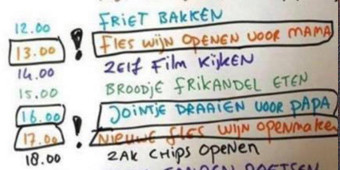 12.00 FRIET BAKKEN
13.00 ! FLES WIJN OPENEN VOOR MAMA
14.00 ZELF FILM KIJKEN
15.00 BROODJE FRIKANDEL ETEN
16.00 ! JOINTJE DRAAIEN VOOR PAPA
17.00 NIEUWE FLES WIJN OPENMAKEN
18.00 ZAK CHIPS OPENEN